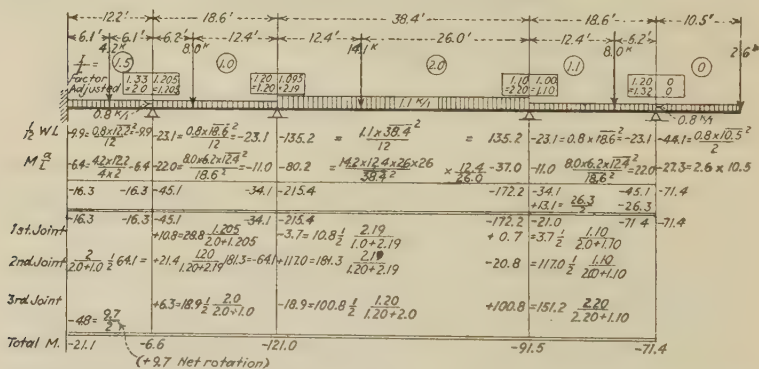 12.2' 18.6' 38.4' 18.6' 10.5'
6.1' 6.1' 6.2' 12.4' 12.4' 26.0' 12.4' 6.2'
4.2K 8.0K 14.1K 8.0K 2.6K
I/L = 1.5 1.0 2.0 1.1 0
Factor 1.33 1.205 1.20 1.095 1.10 1.00 1.20 0
Adjusted =2.0 =1.205 =1.20 =2.19 =2.20 =1.10 =1.32 0
0.8 K/1 1.1 K/1 0.8 K/1
1/12 WL -9.9 = 0.8×12.2²/12 = -9.9 -23.1 = 0.8×18.6²/12 = -23.1 -135.2 = 1.1×38.4²/12 = 135.2 -23.1 = 0.8×18.6²/12 = -23.1 -44.1 = 0.8×10.5²/2
M a/L -6.4 = 4.2×12.2/4×2 = -6.4 -22.0 = 8.0×6.2×12.4²/18.6² = -11.0 -80.2 = 14.2×12.4×26×26/38.4² × 12.4/26.0 -37.0 -11.0 8.0×6.2×12.4²/18.6² = 22.0 -27.3 = 2.6×10.5
-16.3 -16.3 -45.1 -34.1 -215.4 -172.2 -34.1 -45.1 -71.4
+13.1 = 26.3/2 -26.3
-16.3 -16.3 -45.1 -34.1 -215.4 -172.2 -21.0 -71.4 -71.4
1st. Joint +10.8 = 28.8 1/2 1.205/2.0+1.205 -3.7 = 10.8 1/2 2.19/1.0+2.19 +0.7 = 3.7 1/2 1.10/2.0+1.10
2nd. Joint 2/2.0+1.0 1/2 64.1 = +21.4 1.20/1.20+2.19 181.3 = -64.1 +117.0 = 181.3 2.19/1.20+2.19 -20.8 = 117.0 1/2 1.10/2.20+1.10
3rd Joint +6.3 = 18.9 1/2 2.0/2.0+1.0 -18.9 = 100.8 1/2 1.20/1.20+2.0 +100.8 = 151.2 2.20/2.20+1.10
-4.8 = 9.7/2
Total M. -21.1 -6.6 -121.0 -91.5 -71.4
(+9.7 Net rotation)